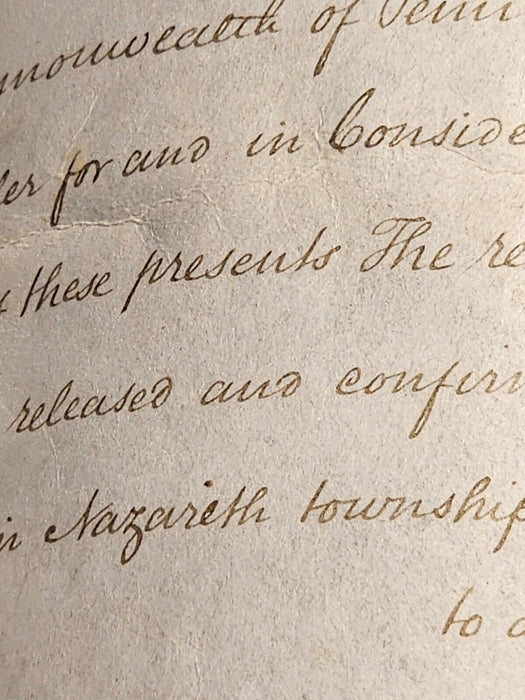 mmonwealth of Penn
ler for and in Conside
these presents The re
released and confirm
in Nazareth township
to a